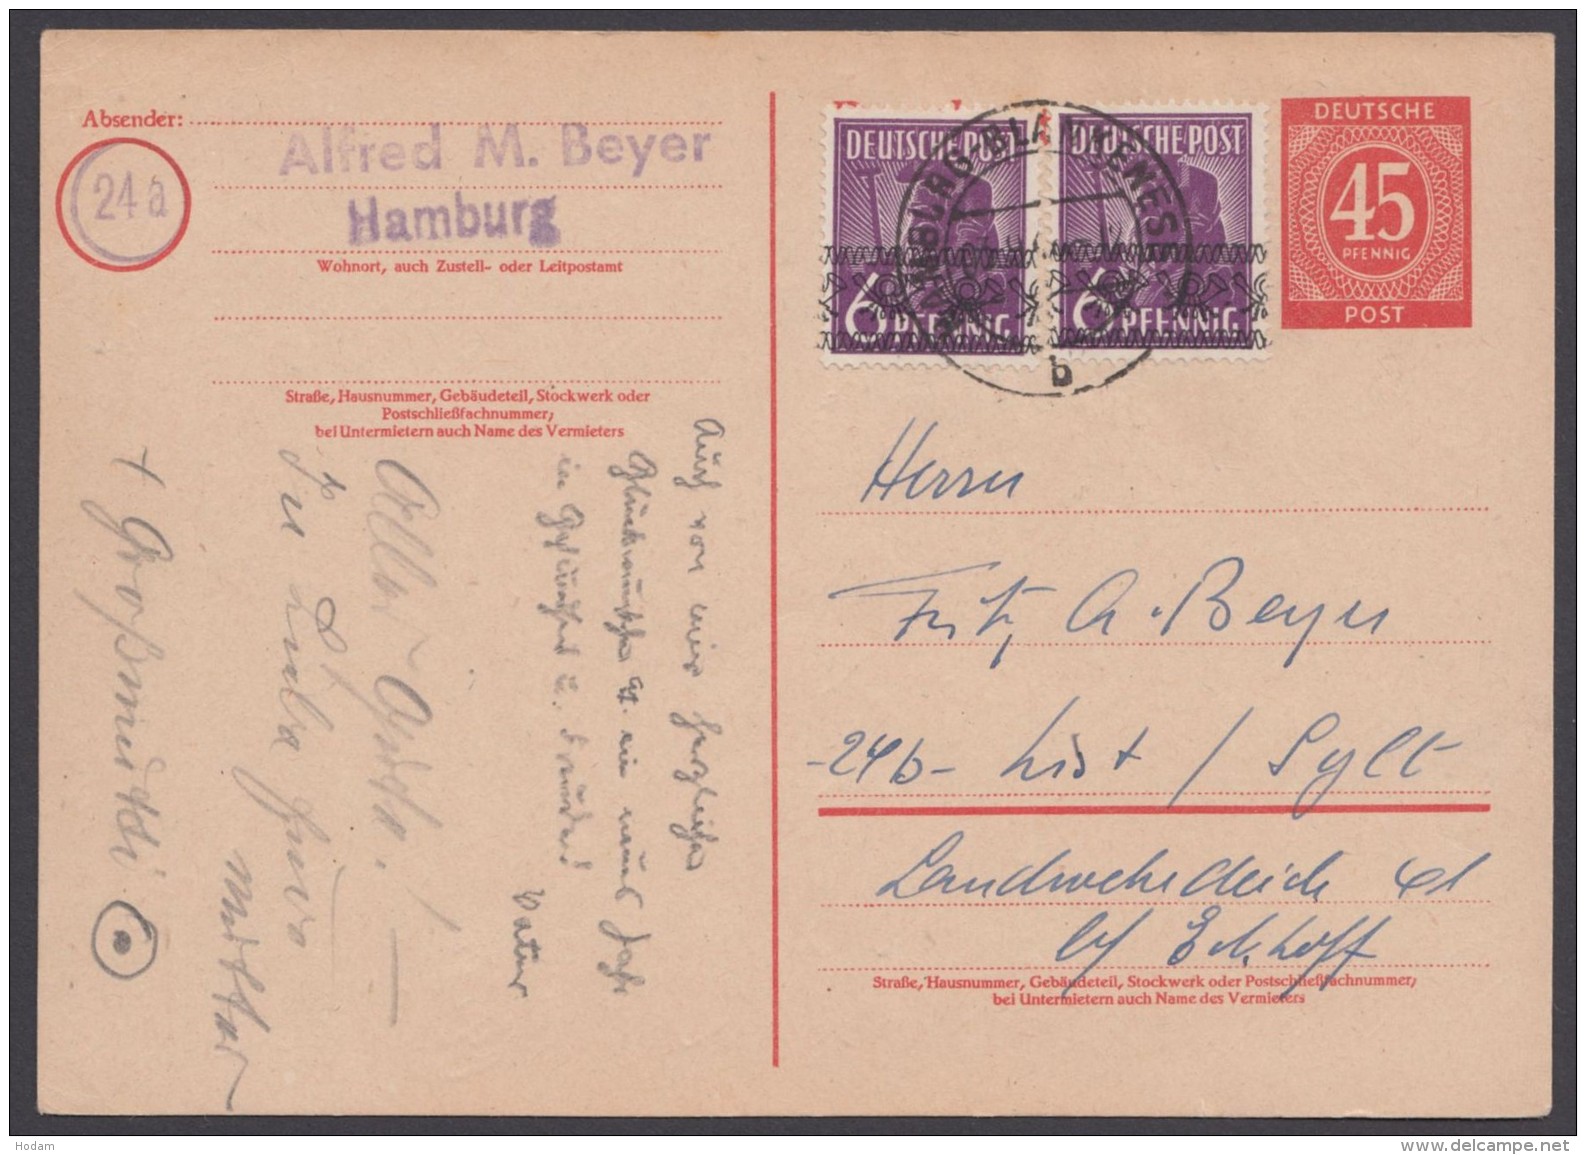 Absender:
24a
Alfred M. Beyer
Hamburg
Wohnort, auch Zustell- oder Leitpostamt
Straße, Hausnummer, Gebäudeteil, Stockwerk oder
Postschließfachnummer;
bei Untermietern auch Name des Vermieters
Auch von mir herzlichen
Glückwunsch ein neues Jahr
in Gesundheit u. Freude!
Vater
Alles Gute!
In Liebe
Mutter
+ Großmutti
DEUTSCHE POST
6 PFENNIG
DEUTSCHE POST
6 PFENNIG
HAMBURG-BLANKENESE
b
DEUTSCHE
45
PFENNIG
POST
Herrn
Fritz A. Beyer
-24b- List / Sylt
Landwehrdeich
b/ Eckhoff
Straße, Hausnummer, Gebäudeteil, Stockwerk oder Postschließfachnummer;
bei Untermietern auch Name des Vermieters
Hodam
www.delcampe.net